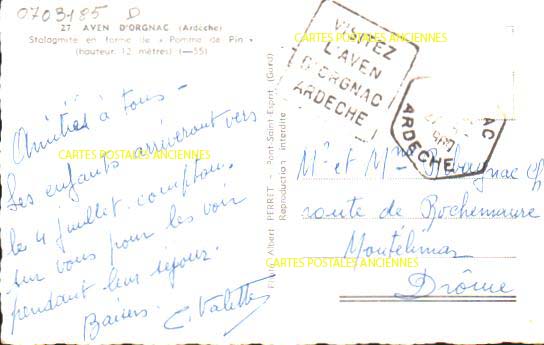 0703185 D
27 AVEN D'ORGNAC (Ardèche)
Stalagmite en forme de « Pomme de Pin »
(hauteur 12 mètres) (—55)
Amitiés à tous -
Les enfants arriveront vers
le 4 juillet. comptons
sur vous pour les voir
pendant leur séjour.
Baisers. C. Valette
CARTES POSTALES ANCIENNES
Albert PERRET - Pont-Saint-Esprit (Gard)
Reproduction interdite
VISITEZ
L'AVEN
D'ORGNAC
ARDECHE
CARTES POSTALES ANCIENNES
AC
ARDECHE
CARTES POSTALES ANCIENNES
Mr et Mme
route de Rochemaure
Montélimar
CARTES POSTALES ANCIENNES
Drôme